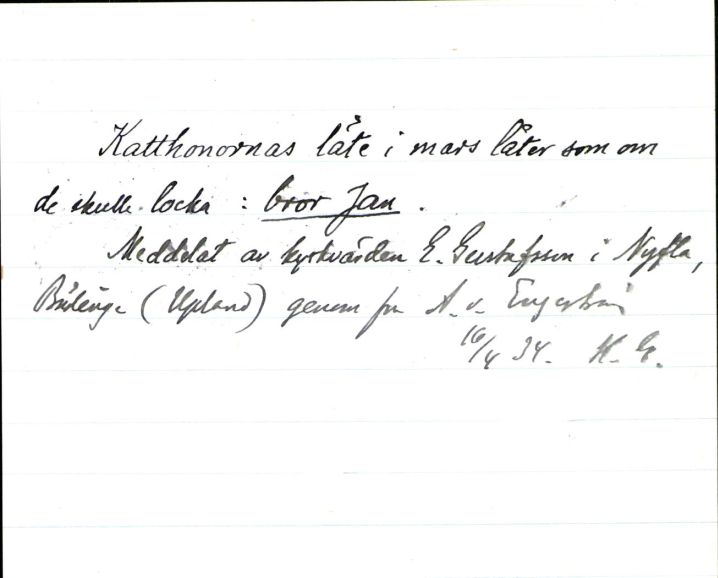 Katthonornas läte i mars låter som om
de skulle locka: bror Jan.
Meddelat av kyrkvärden E. Gustafsson i Nyfla,
(Upland) genom A. v. Engeström
16/4 34. H. G.